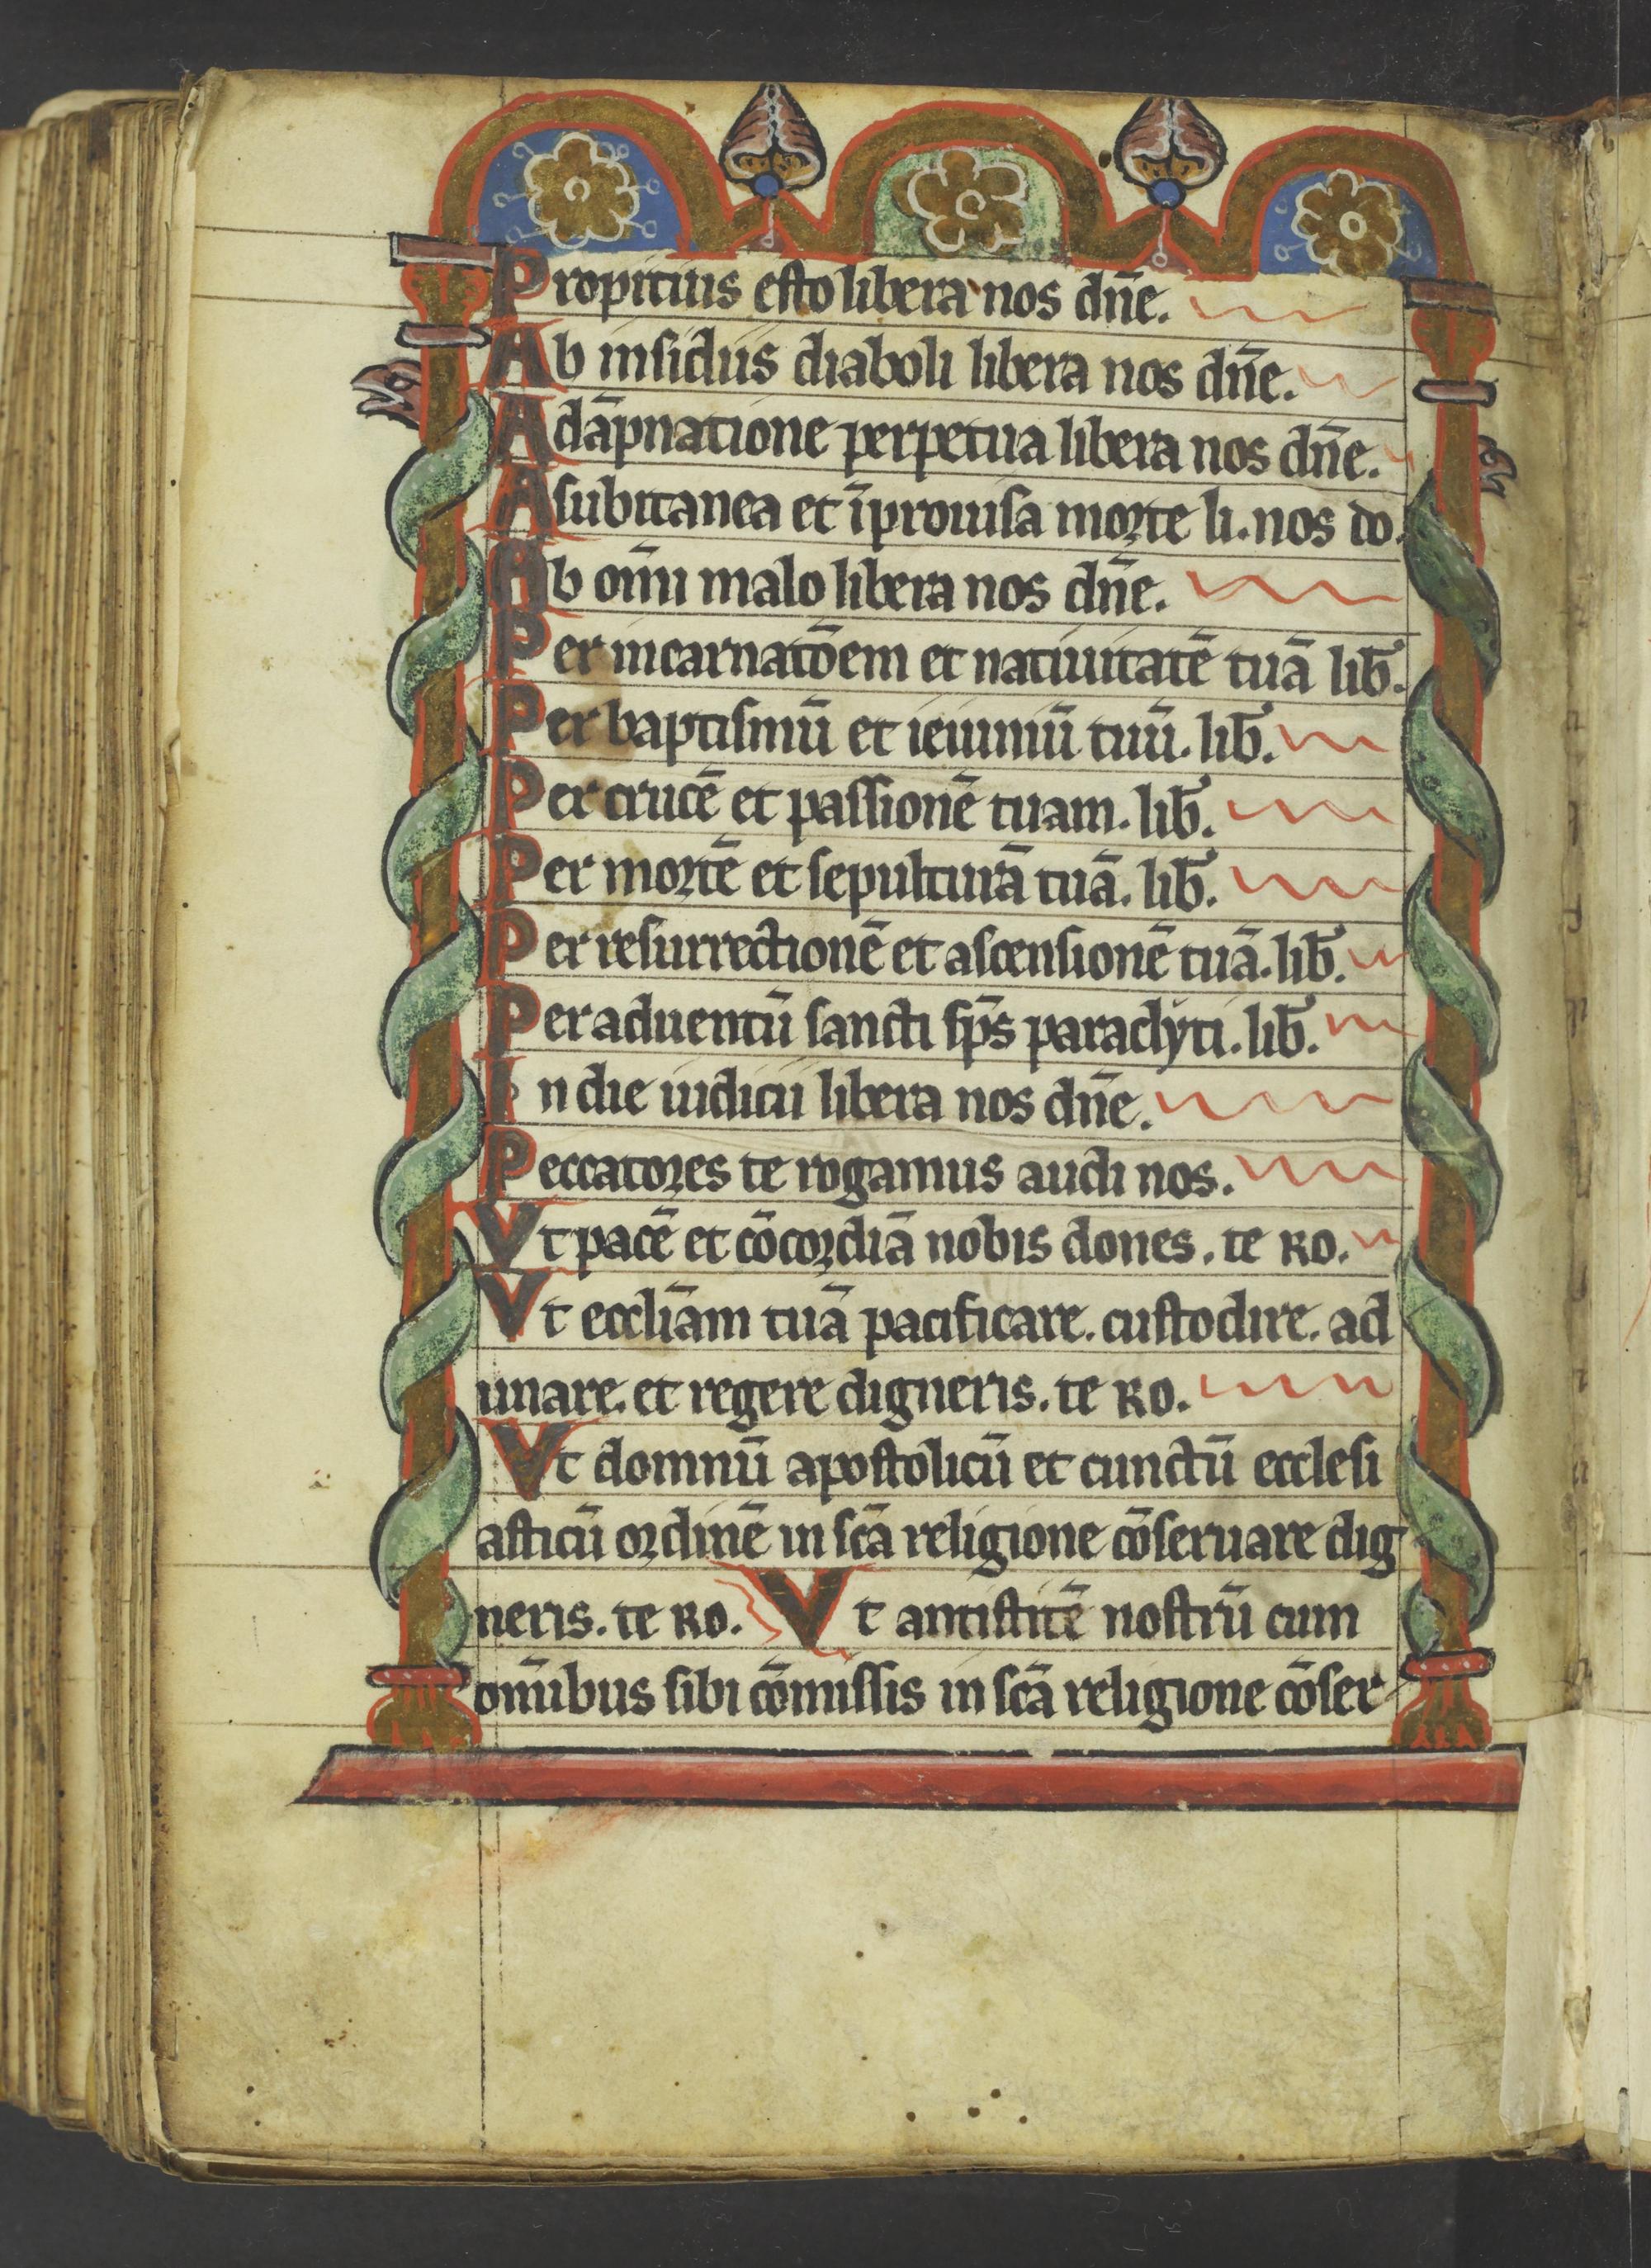 Propitius esto libera nos dn̄e.
Ab insidiis diaboli libera nos dn̄e.
A dāpnatione perpetua libera nos dn̄e.
A subitanea et īprouisa morte li. nos do.
Ab om̄i malo libera nos dn̄e.
Per incarnatōem et natiuitatē tuā lib̄.
Per baptismū et ieiuniū tuū. lib̄.
Per crucē et passionē tuam. lib̄.
Per mortē et sepulturā tuā. lib̄.
Per resurrectionē et ascensionē tuā. lib̄.
Per aduentū sancti sp̄s paraclyti. lib̄.
In die iudicii libera nos dn̄e.
Peccatores te rogamus audi nos.
Vt pacē et cōcordiā nobis dones. te ro.
Vt eccliām tuā pacificare. custodire. ad
unare. et regere digneris. te ro.
Vt domnū apostolicū et cunctū ecclesi
asticū ordinē in scā religione cōseruare dig
neris. te ro. Vt antistitē nostrū cum
om̄ibus sibi cōmissis in scā religione cōser